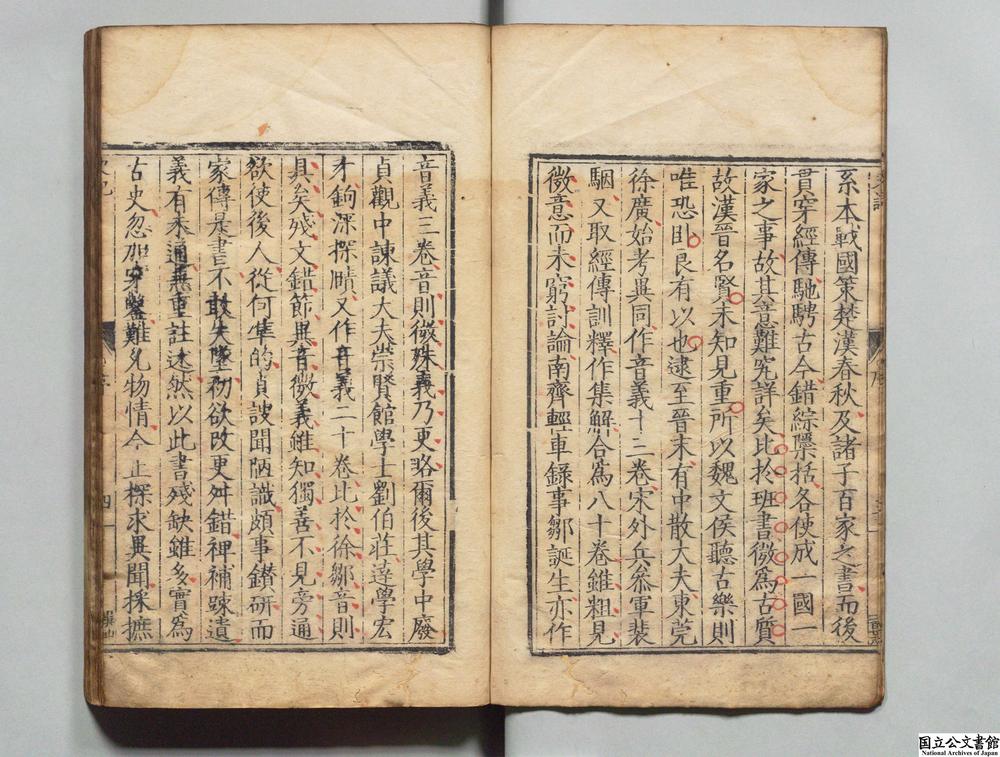 系本戰國策楚漢春秋及諸子百家之書而後
貫穿經傳馳騁古今錯綜隱括各使成一國一
家之事故其意難究詳矣比於班書微爲古質
故漢晉名賢未知見重所以魏文侯聽古樂則
唯恐臥良有以也逮至晉末有中散大夫東莞
徐廣始考異同作音義十三卷宋外兵叅軍裴
駰又取經傳訓釋作集解合爲八十卷雖粗見
微意而未窮討論南齊輕車錄事鄒誕生亦作
音義三卷音則微殊義乃更略爾後其學中廢
貞觀中諫議大夫崇賢館學士劉伯莊達學宏
才鉤深探賾又作音義二十卷比於徐鄒音則
具矣殘文錯節異音微義雖知獨善不見旁通
欲使後人從何凖的貞謏聞陋識頗事鑚研而
家傳是書不敢失墜初欲改更舛錯裨補踈遺
義有未通兼重註述然以此書殘缺雖多實爲
古史忽加穿鑿難允物情今止探求異聞採摭
史記
序
四
国立公文書館
National Archives of Japan